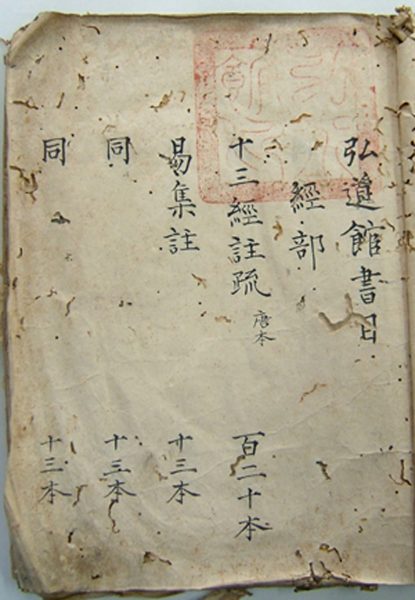 弘道館書目
經部
十三經註疏 唐本 百二十本
易集註 十三本
同 十三本
同 十三本